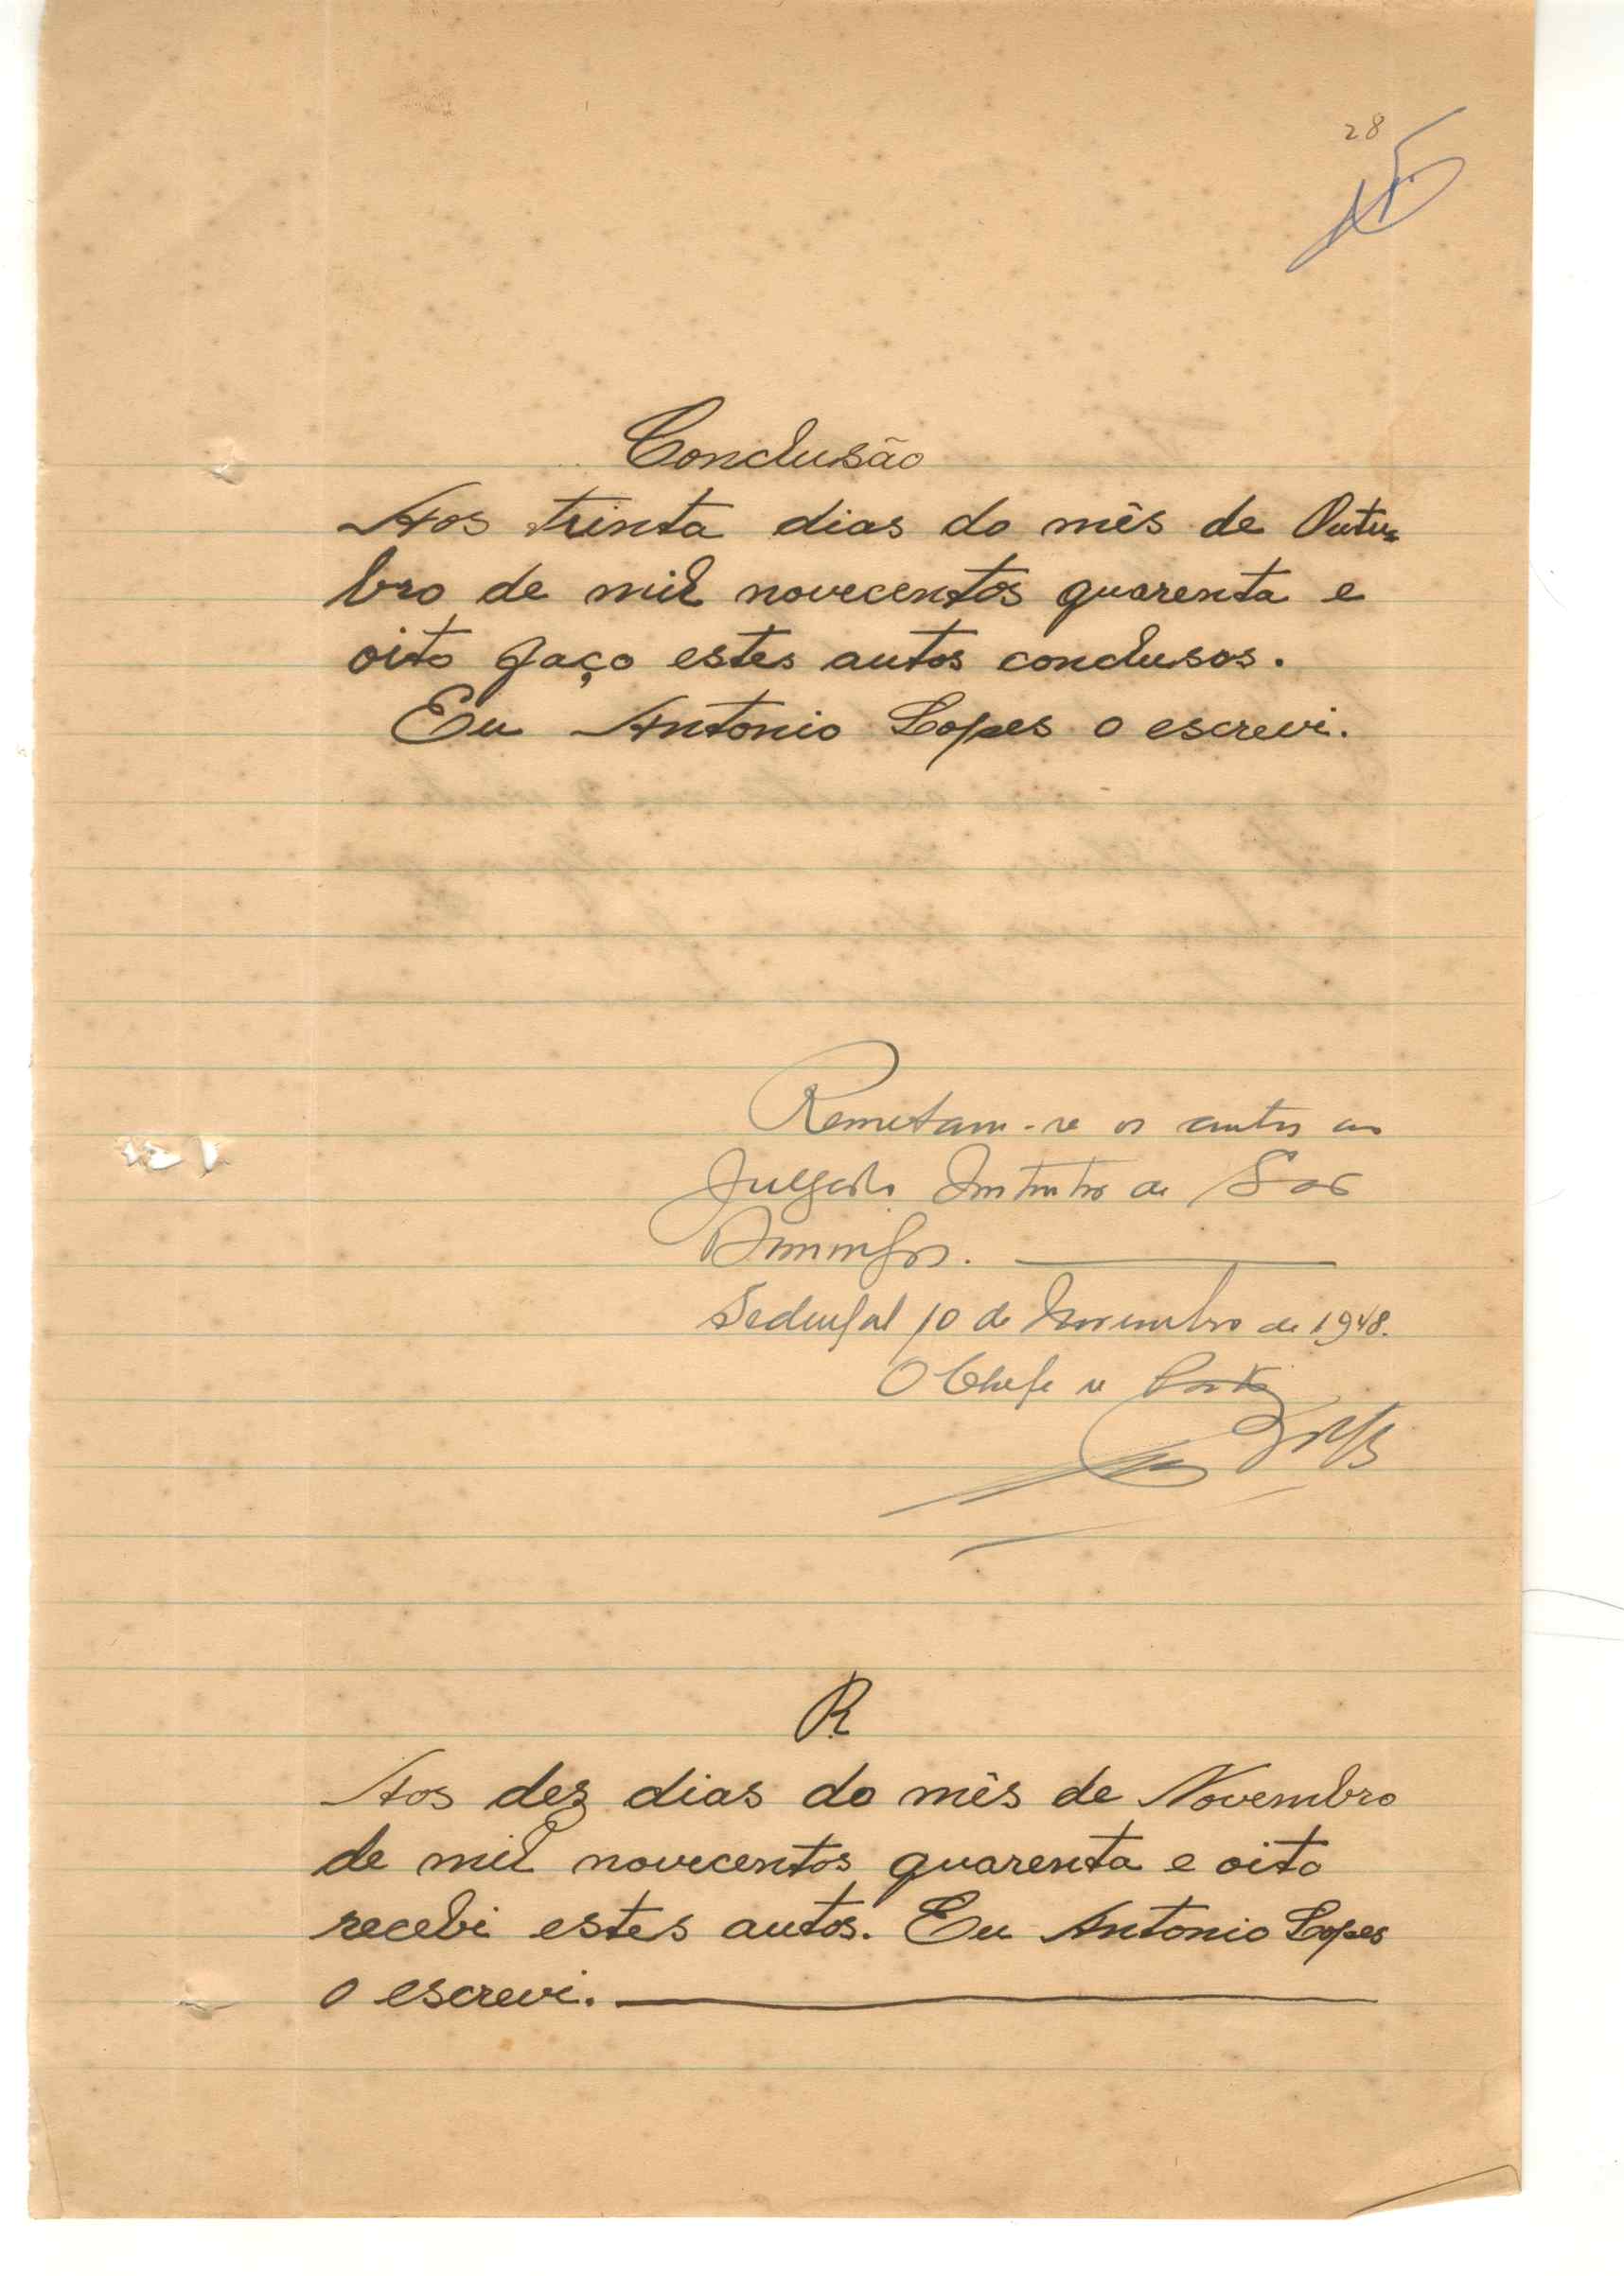 28
Conclusão
Aos trinta dias do mês de Outu=
bro de mil novecentos quarenta e
oito faço estes autos conclusos.
Eu Antonio Lopes o escrevi.
Remetam-se os autos ao
Julgado Instrutor de São
Domingos.
10 de Novembro de 1948.
O Chefe do Posto
R
Aos dez dias do mês de Novembro
de mil novecentos quarenta e oito
recebi estes autos. Eu Antonio Lopes
o escrevi.